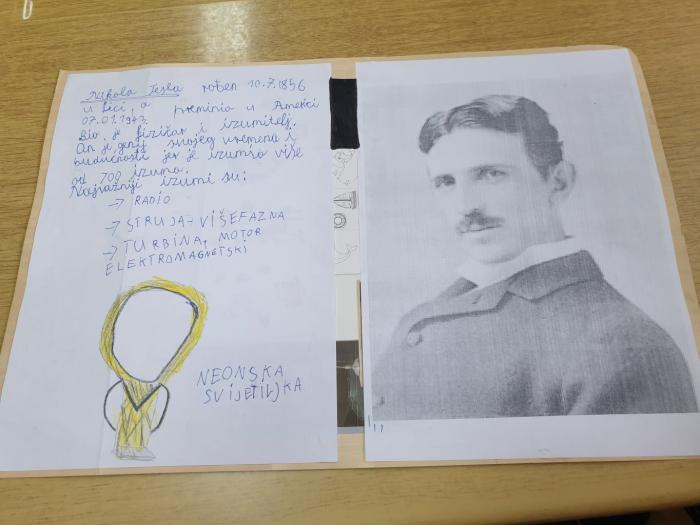 Nikola Tesla rođen 10.7.1856
u Lici, a preminio u Americi
07.01.1943.
Bio je fizičar i izumitelj.
On je genij svojeg vremena i
budućnosti jer je izumio više
od 700 izuma.
Najvažniji izumi su:
→ RADIO
→ STRUJA-VIŠEFAZNA
→ TURBINA, MOTOR
ELEKTROMAGNETSKI
NEONSKA
SVIJETILJKA